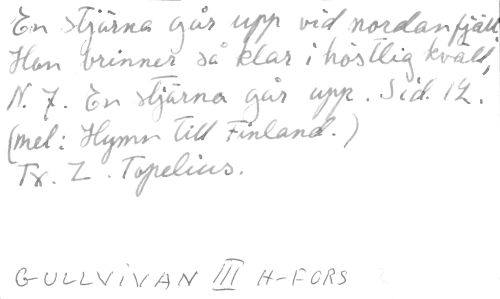 En stjärna går upp vid nordanfjäll
Han brinner så klar i höstlig kväll,
N. 7. En stjärna går upp. Sid. 12.
(mel: Hymn till Finland.)
Tx. Z. Topelius.
GULLVIVAN III H-FORS